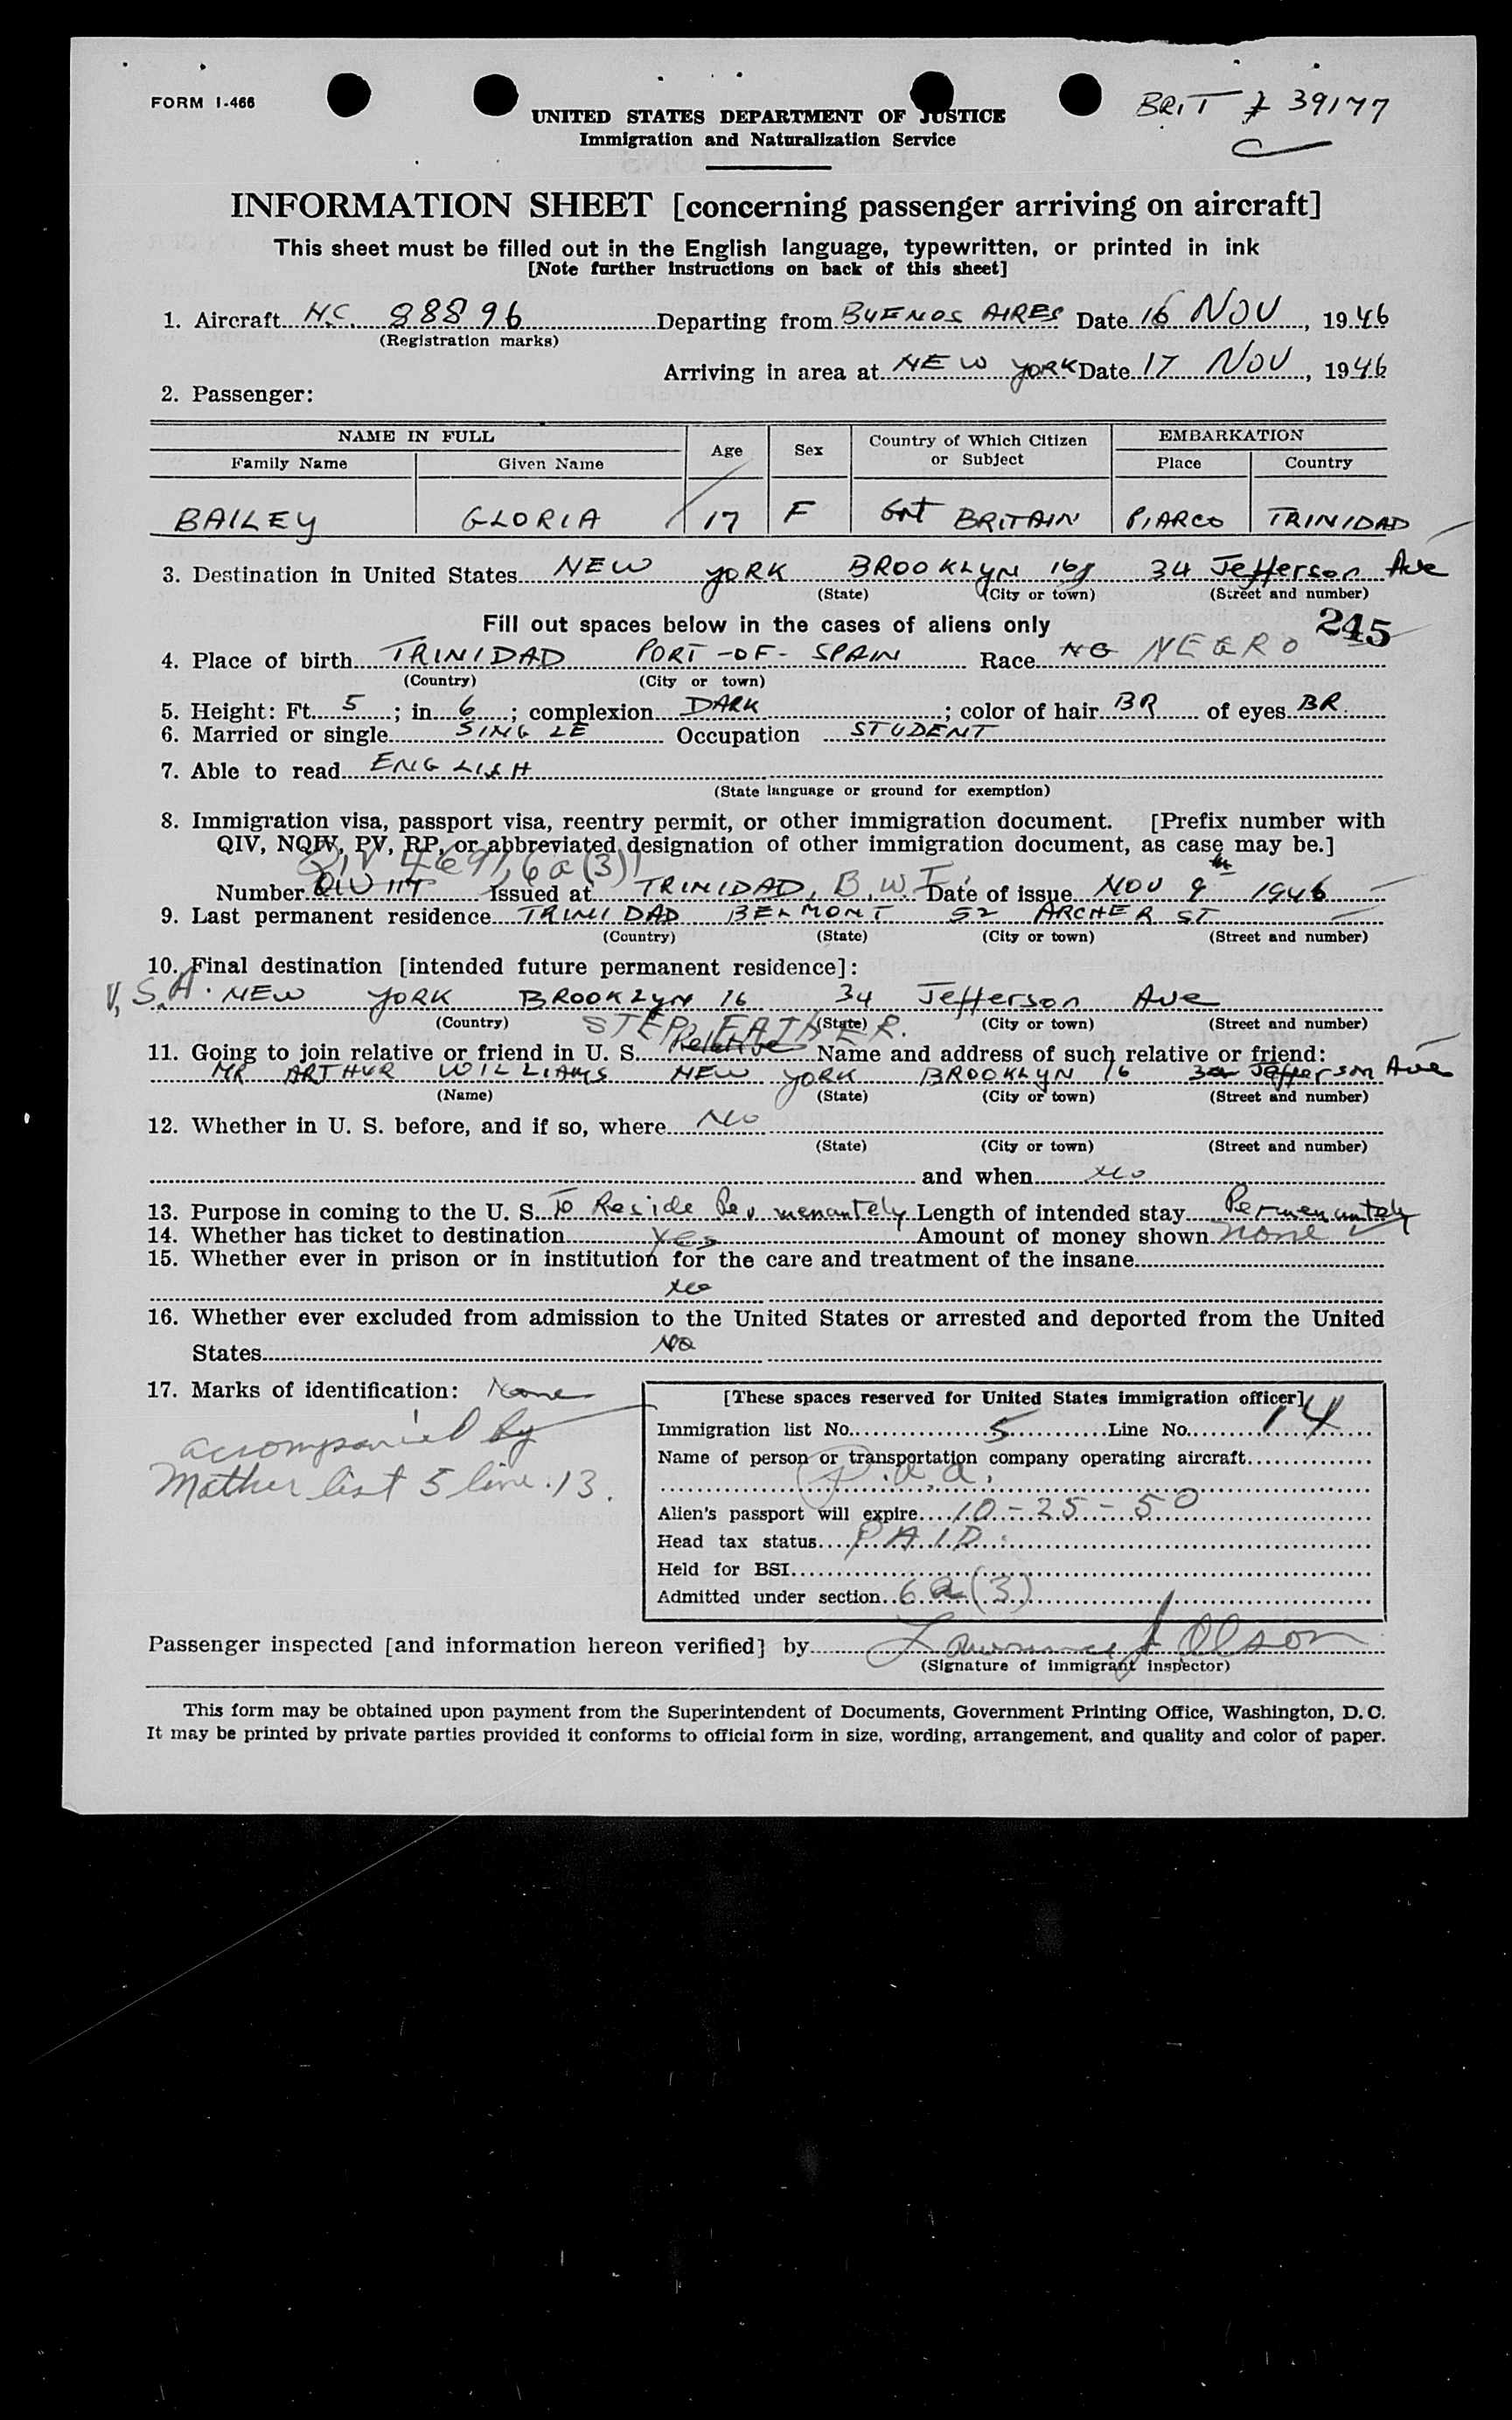 FORM I-466
BRIT # 39177
UNITED STATES DEPARTMENT OF JUSTICE
Immigration and Naturalization Service
INFORMATION SHEET [concerning passenger arriving on aircraft]
This sheet must be filled out in the English language, typewritten, or printed in ink
[Note further instructions on back of this sheet]
1. Aircraft N.C. 88896 Departing from BUENOS AIRES Date 16 NOV, 1946
(Registration marks)
Arriving in area at NEW YORK Date 17 NOV, 1946
2. Passenger:
NAME IN FULL Age Sex Country of Which Citizen or Subject EMBARKATION
Family Name Given Name Place Country
BAILEY GLORIA 17 F Gnt BRITAIN PIARCO TRINIDAD
3. Destination in United States NEW YORK BROOKLYN 16 34 Jefferson Ave
(State) (City or town) (Street and number)
Fill out spaces below in the cases of aliens only 245
4. Place of birth TRINIDAD PORT-OF-SPAIN Race NG NEGRO
(Country) (City or town)
5. Height: Ft. 5; in. 6; complexion DARK; color of hair BR of eyes BR.
6. Married or single SINGLE Occupation STUDENT
7. Able to read ENGLISH
(State language or ground for exemption)
8. Immigration visa, passport visa, reentry permit, or other immigration document. [Prefix number with
QIV, NQIV, PV, RP, or abbreviated designation of other immigration document, as case may be.]
QIV 4691, 6a(3)
Number QIV 117 Issued at TRINIDAD, B.W.I. Date of issue NOV 9th 1946
9. Last permanent residence TRINIDAD BELMONT 52 ARCHER ST
(Country) (State) (City or town) (Street and number)
10. Final destination [intended future permanent residence]:
U.S.A. NEW YORK BROOKLYN 16 34 Jefferson Ave
(Country) (State) (City or town) (Street and number)
STEP FATHER.
11. Going to join relative or friend in U. S. Relative Name and address of such relative or friend:
MR ARTHUR WILLIAMS NEW YORK BROOKLYN 16 34 Jefferson Ave
(Name) (State) (City or town) (Street and number)
12. Whether in U. S. before, and if so, where No
(State) (City or town) (Street and number)
and when No
13. Purpose in coming to the U. S. To Reside Permenantely Length of intended stay Permenantely
14. Whether has ticket to destination Yes Amount of money shown none
15. Whether ever in prison or in institution for the care and treatment of the insane
No
16. Whether ever excluded from admission to the United States or arrested and deported from the United
States No
17. Marks of identification: None
accompanied by
Mother list 5 line 13.
[These spaces reserved for United States immigration officer]
Immigration list No. 5 Line No. 14
Name of person or transportation company operating aircraft
P.a.a.
Alien's passport will expire 10-25-50
Head tax status PAID.
Held for BSI
Admitted under section 6a(3)
Passenger inspected [and information hereon verified] by Lawrence J Olson
(Signature of immigrant inspector)
This form may be obtained upon payment from the Superintendent of Documents, Government Printing Office, Washington, D. C.
It may be printed by private parties provided it conforms to official form in size, wording, arrangement, and quality and color of paper.